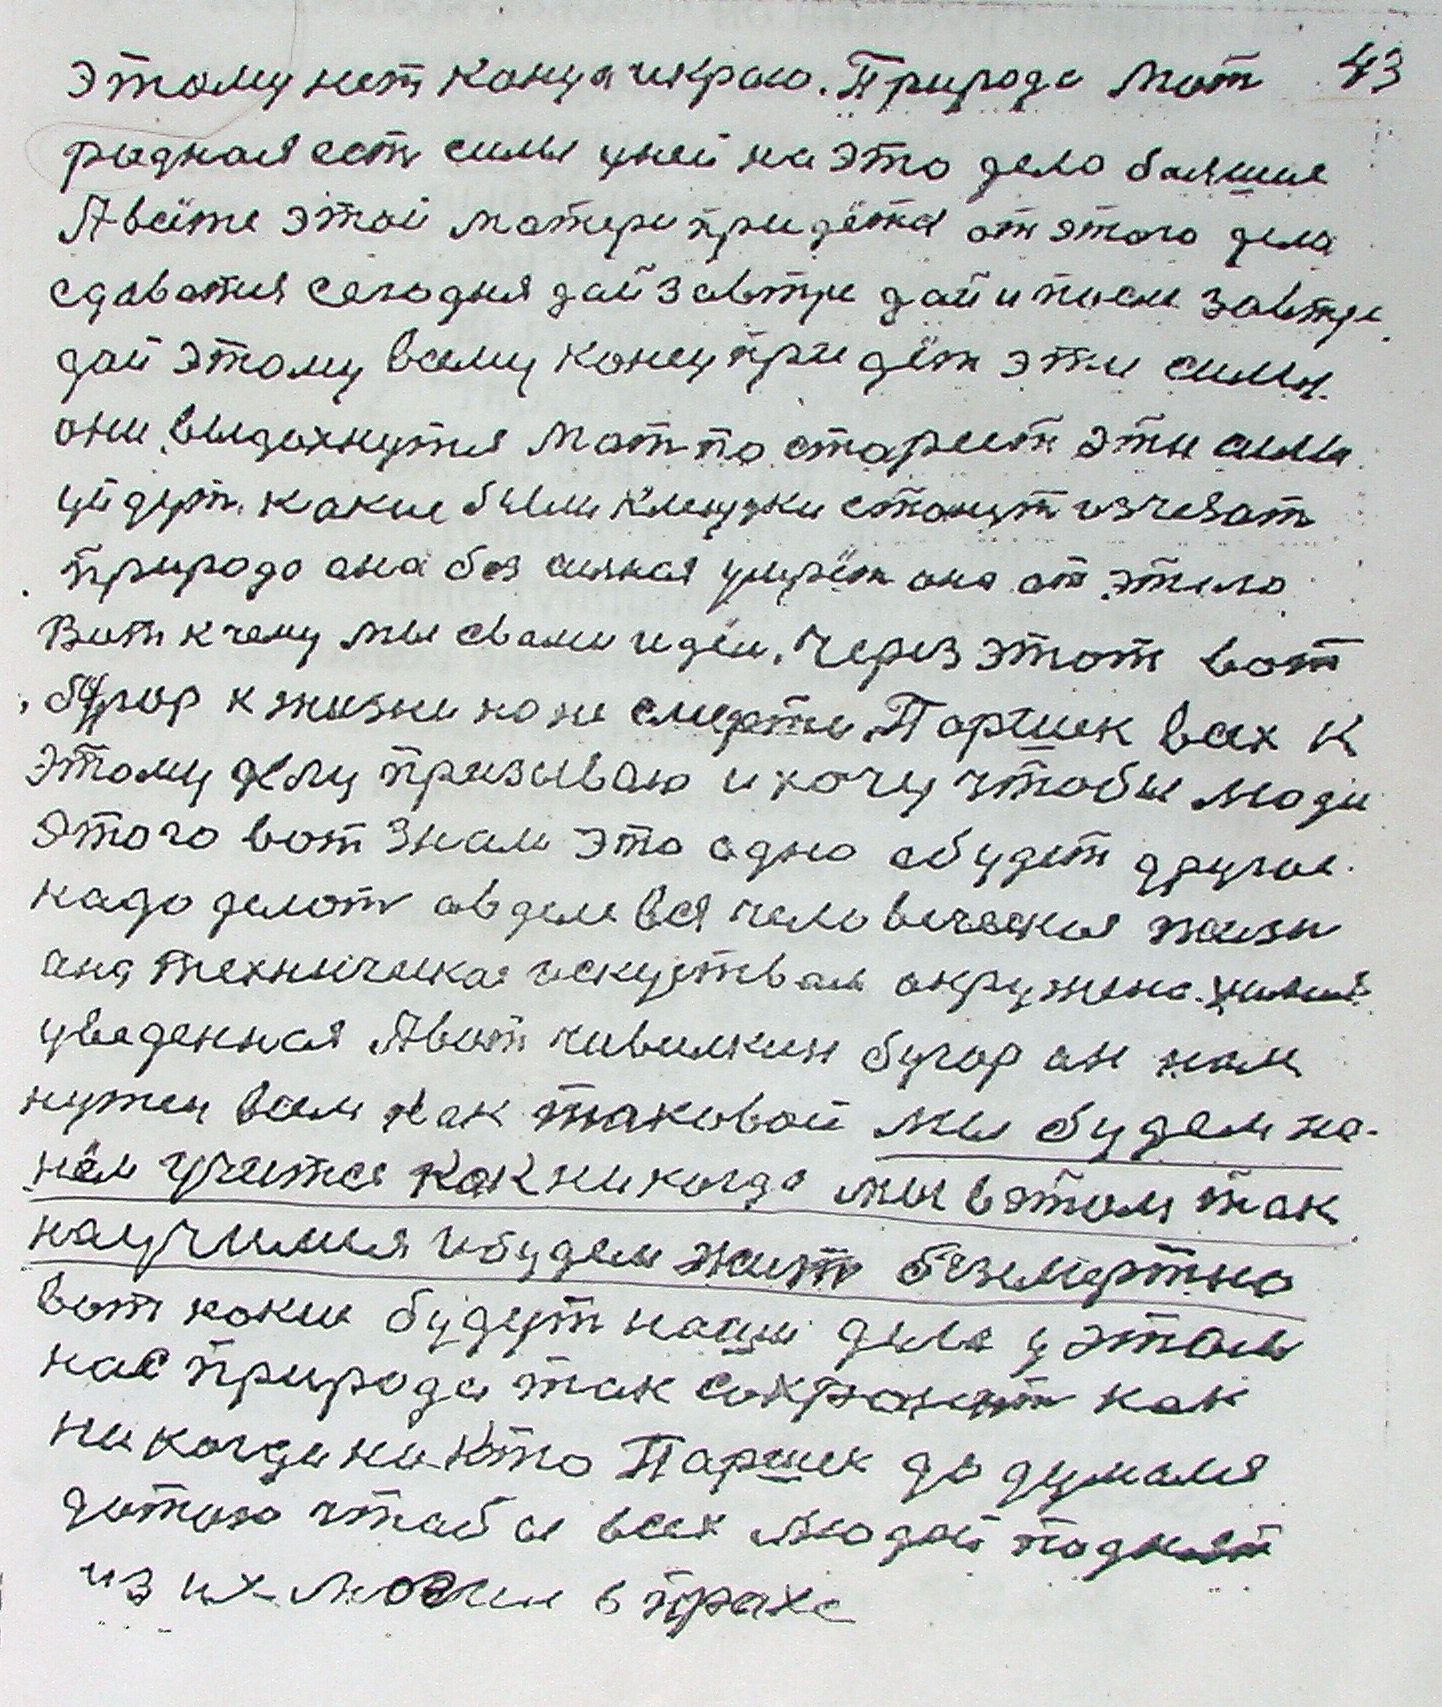 этому нет конца и краю. Природа мат 43
родная ест силы у ней на это дело бальшие
А ведте этой матери придётся от этого дела
сдаватся сегодня дай завтри дай и после завтри
дай этому всему конец придёт эти силы
они выдохнутся мат по стареит эти силы
уйдут. какие были к людям станут изчезат
природа она без силная умрёт она от этого
Вот к чему мы с вами идём. Через этот вот
бугор к жизни но не смерти Паршек всех к
этому делу призываю и хочу чтобы люди
этого вот знали это одно а будет другое
надо делат авделе вся человеческая жизн
она техническая искуством окружена.
уведенная А вот чивилкин бугор он нам
нужен всем как таковой мы будем на
нём учится как никогда мы в этом так
научимся и будем жит безсмертно
вот какие будут наши дела у этом
нас природа так сохранит как
никогда никто Паршек додумался
до того чтобы всех людей поднят
из их в прахе